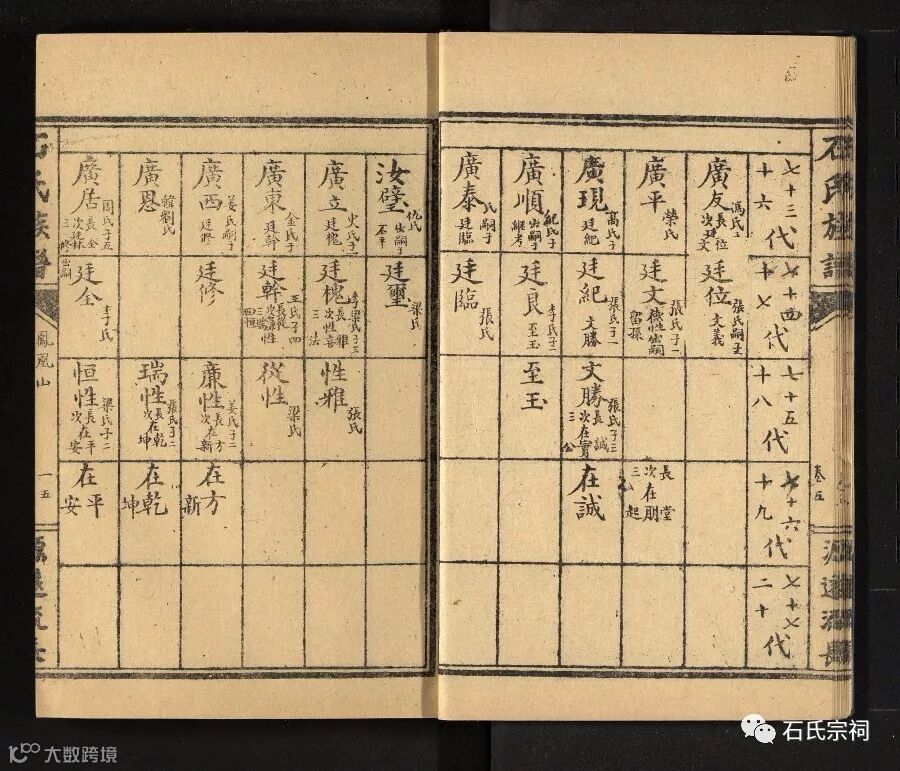 石氏族譜
卷五
源遠流長
七十三代
十六
七十四代
十七
七十五代
十八
七十六代
十九
七十七代
二十
廣友
馮氏子二
長位
次廷文
廷位
張氏嗣子
文義
廣平
榮氏
廷文
張氏子二
德性出嗣
留孫
長堂
次在朋
三
起
廣現
高氏子
廷紀
廷紀
張氏子一
文勝
文勝
張氏子三
長誠
次在實
三公
在誠
廣順
紀氏子
出嗣子
繼考
廷良
李氏子一
至玉
至玉
廣泰
氏嗣子
廷臨
廷臨
張氏
汝璧
仇氏
出嗣子
丕平
廷璽
梁氏
廣立
史氏子一
廷槐
廷槐
李梁氏子三
長雅
次性喜
三法
性雅
張氏
廣東
金氏子
廷幹
廷幹
王氏子四
長從
次廉性
三瑞
四恒
從性
梁氏
廣西
姜氏嗣子
廷修
廷修
廉性
姜氏子二
長方
次在新
在方
新
廣恩
韓劉氏
瑞性
張氏子二
長乾
次在坤
在乾
坤
廣居
周氏子三
長全
次廷林
三修出嗣
廷全
李氏
恒性
梁氏子二
長平
次在安
在平
安
石氏族譜
鳳凰山
一五
源遠流長
石氏宗祠
大数跨境